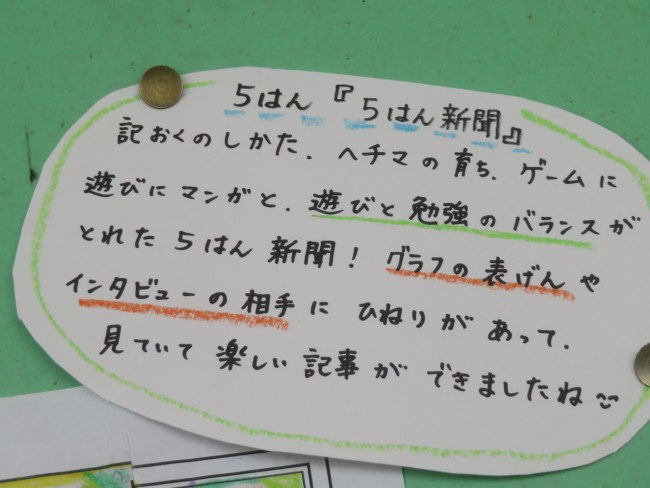 5はん『5はん新聞』
記おくのしかた、ヘチマの育ち、ゲームに
遊びにマンガと、遊びと勉強のバランスが
とれた5はん新聞！グラフの表げんや
インタビューの相手にひねりがあって、
見ていて楽しい記事ができましたね